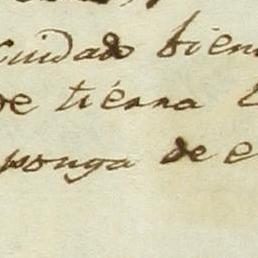 cuidado bien
de tierra
ponga de e